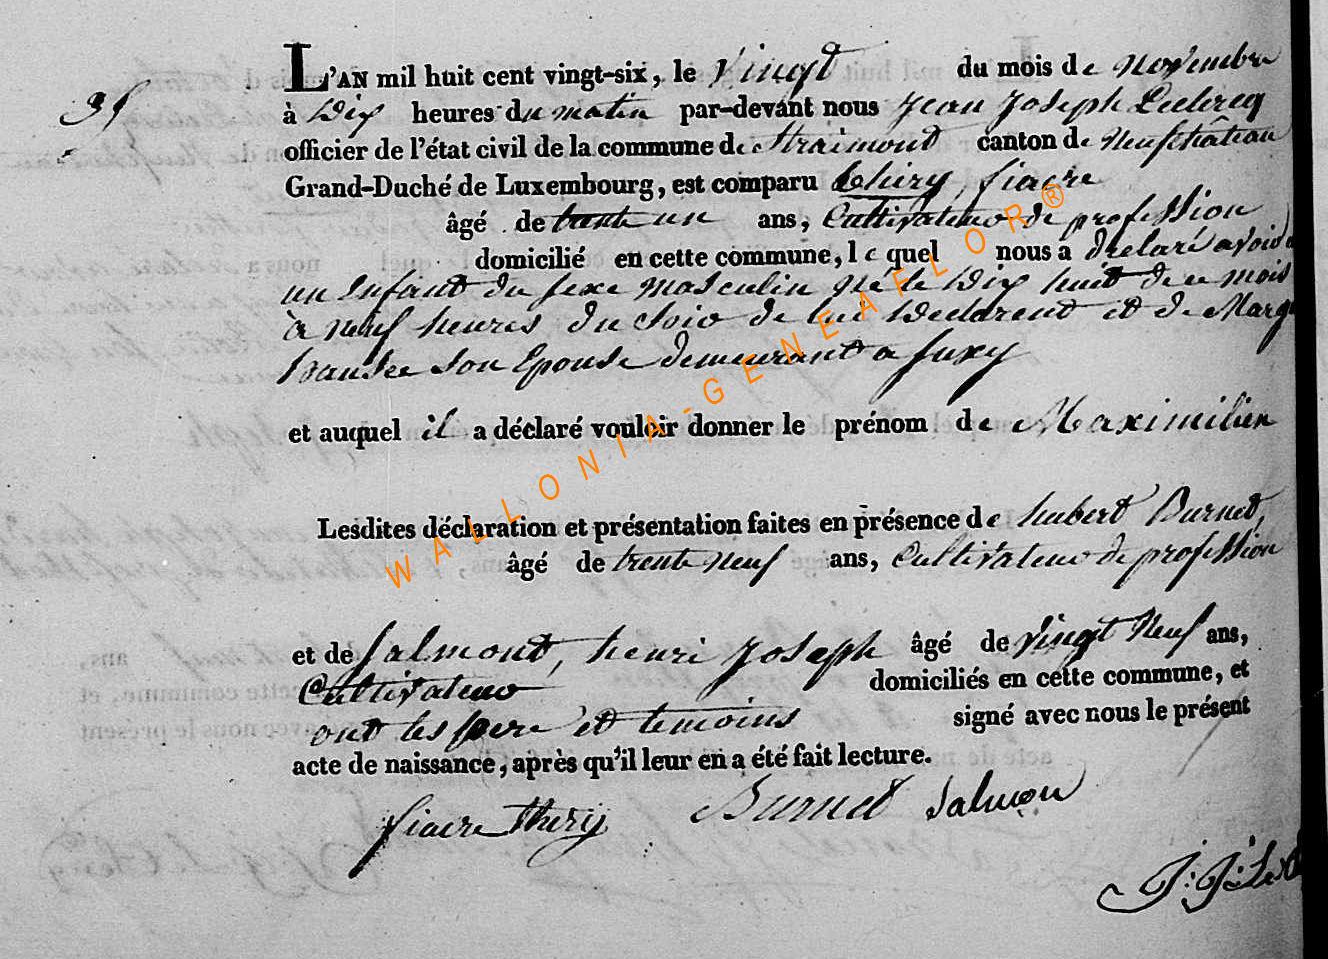 L'AN mil huit cent vingt-six, le Vingt du mois de novembre
à Dix heures du matin par-devant nous Jean Joseph Leclercq
officier de l'état civil de la commune de Straimont canton de neufchâteau
Grand-Duché de Luxembourg, est comparu thiry, fiacre
âgé de trente un ans, Cultivateur de profession
domicilié en cette commune, le quel nous a declaré avoir
un Enfant du sexe masculin né le Dix huit de ce mois
à neuf heures du soir de lui Declarent et de Marg
son Epouse demeurant a suxy
et auquel il a déclaré vouloir donner le prénom de Maximilien
Lesdites déclaration et présentation faites en présence de hubert Burnet,
âgé de trente neuf ans, Cultivateur de profession
et de Salmont, henri Joseph âgé de Vingt Neuf ans,
Cultivateur domiciliés en cette commune, et
ont les pere et temoins signé avec nous le présent
acte de naissance, après qu'il leur en a été fait lecture.
fiacre Thiry Burnet Salmon
J: J: Le
WALLONIA-GENEAFLOR®